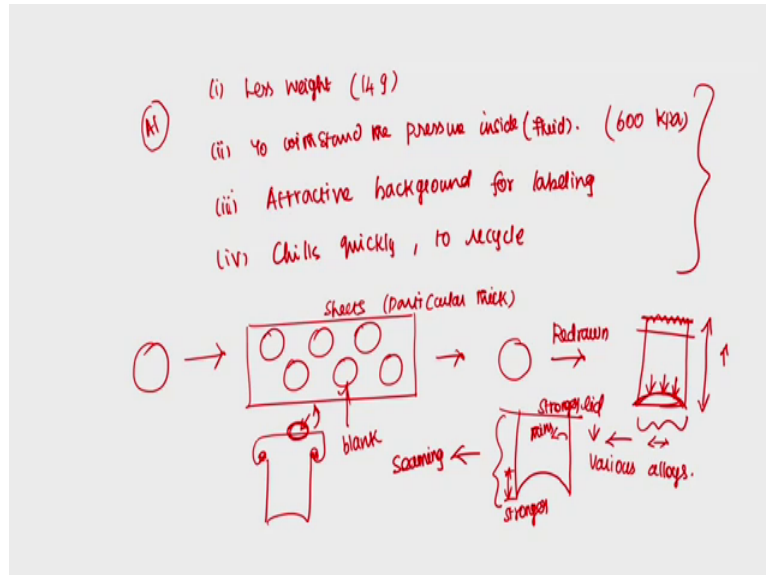 Al
(i) Less weight (14 g)
(ii) To withstand the pressure inside (fluid). (600 kpa)
(iii) Attractive background for labeling
(iv) Chills quickly, to recycle
Sheets (Particular thick)
Redrawn
blank
Seaming
stronger lid
stronger
Various alloys.